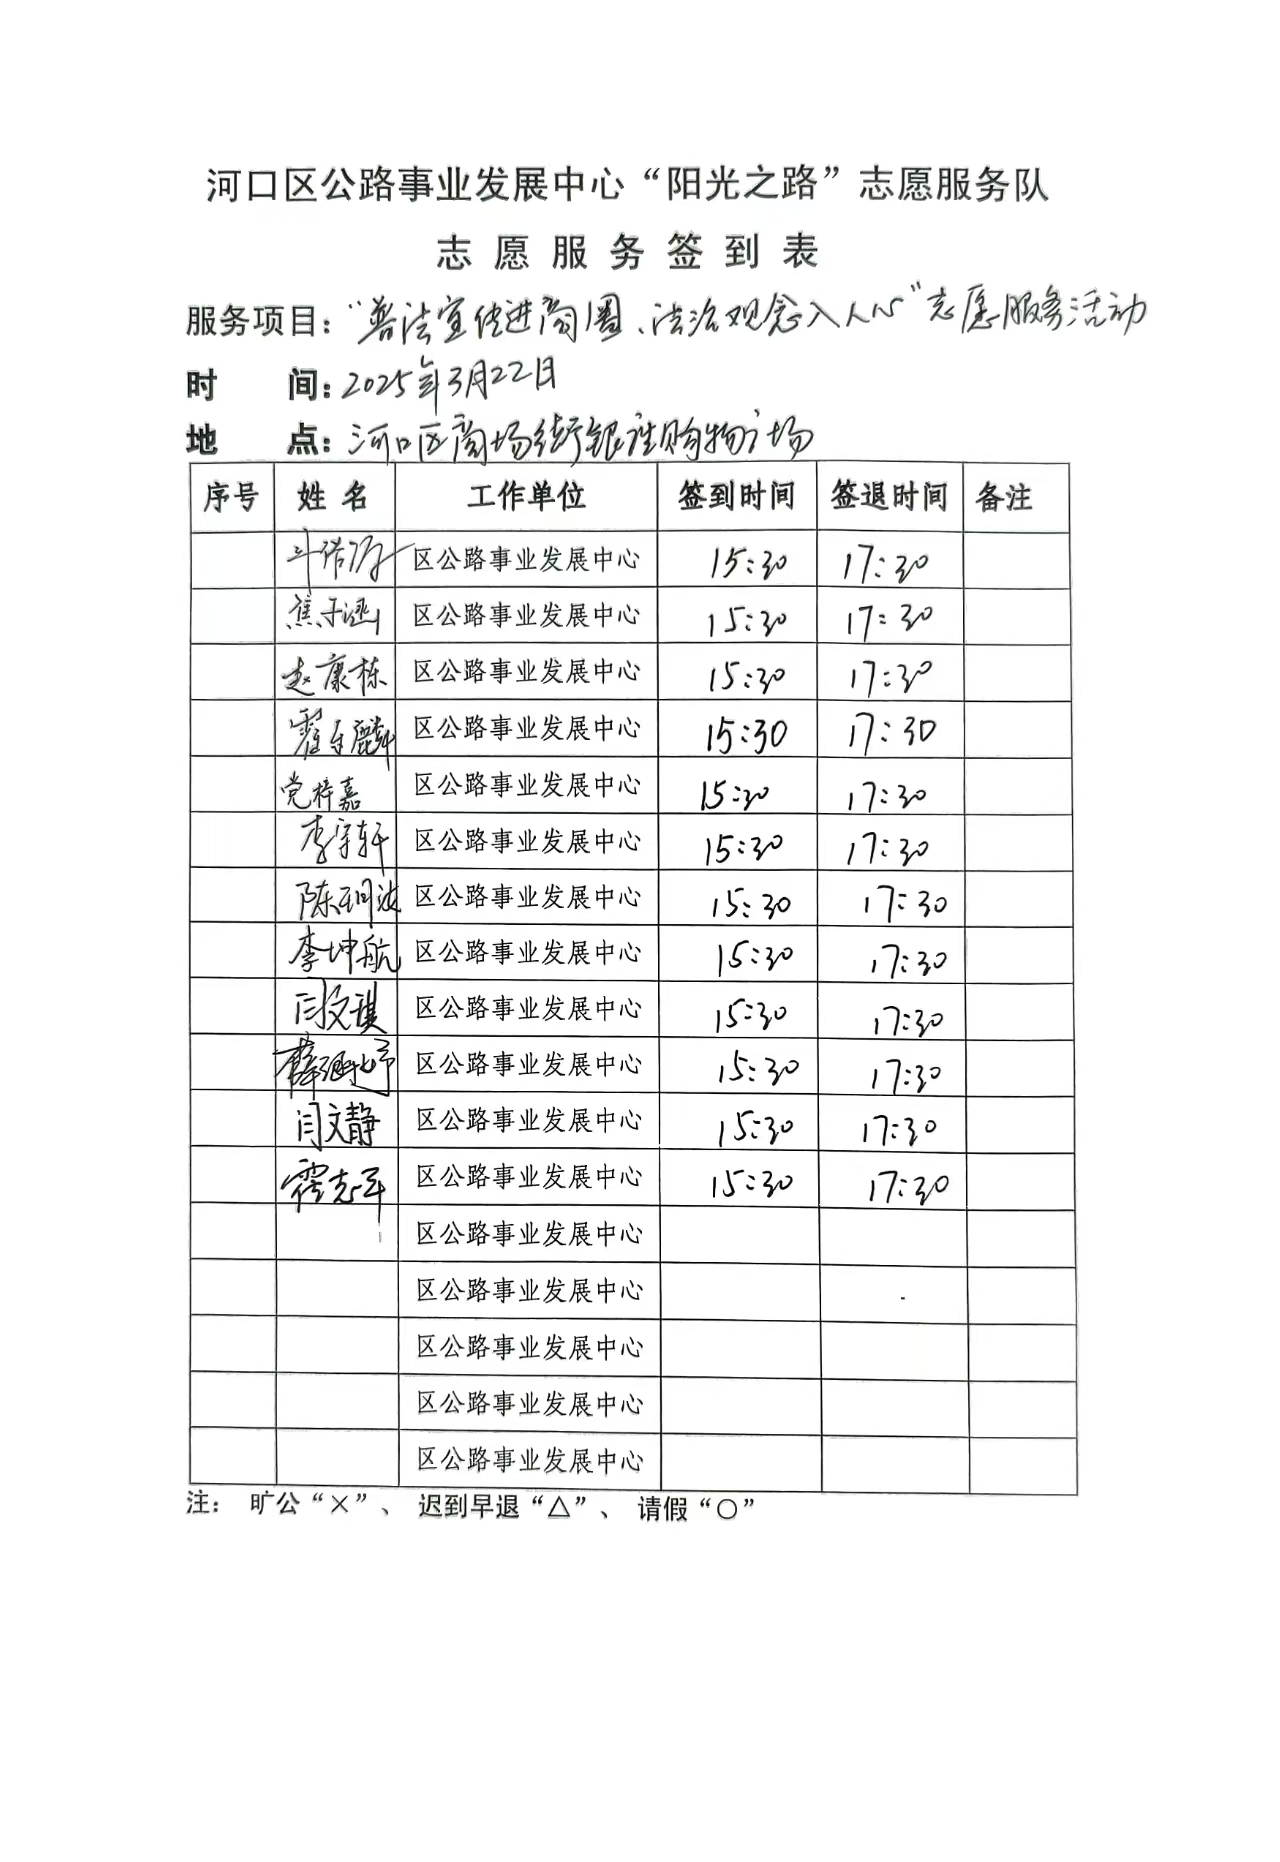 河口区公路事业发展中心“阳光之路”志愿服务队
志愿服务签到表
服务项目：“普法宣传进商圈、法治观念入人心”志愿服务活动
时 间：2025年3月22日
地 点：河口区商场街银座购物广场
序号 姓名 工作单位 签到时间 签退时间 备注
区公路事业发展中心 15:30 17:30
焦子涵 区公路事业发展中心 15:30 17:30
赵康栋 区公路事业发展中心 15:30 17:30
区公路事业发展中心 15:30 17:30
党梓嘉 区公路事业发展中心 15:30 17:30
李宇轩 区公路事业发展中心 15:30 17:30
陈玥 区公路事业发展中心 15:30 17:30
李坤航 区公路事业发展中心 15:30 17:30
闫文琪 区公路事业发展中心 15:30 17:30
薛 区公路事业发展中心 15:30 17:30
闫文静 区公路事业发展中心 15:30 17:30
区公路事业发展中心 15:30 17:30
区公路事业发展中心
区公路事业发展中心
区公路事业发展中心
区公路事业发展中心
区公路事业发展中心
注： 旷公“×”、 迟到早退“△”、 请假“○”